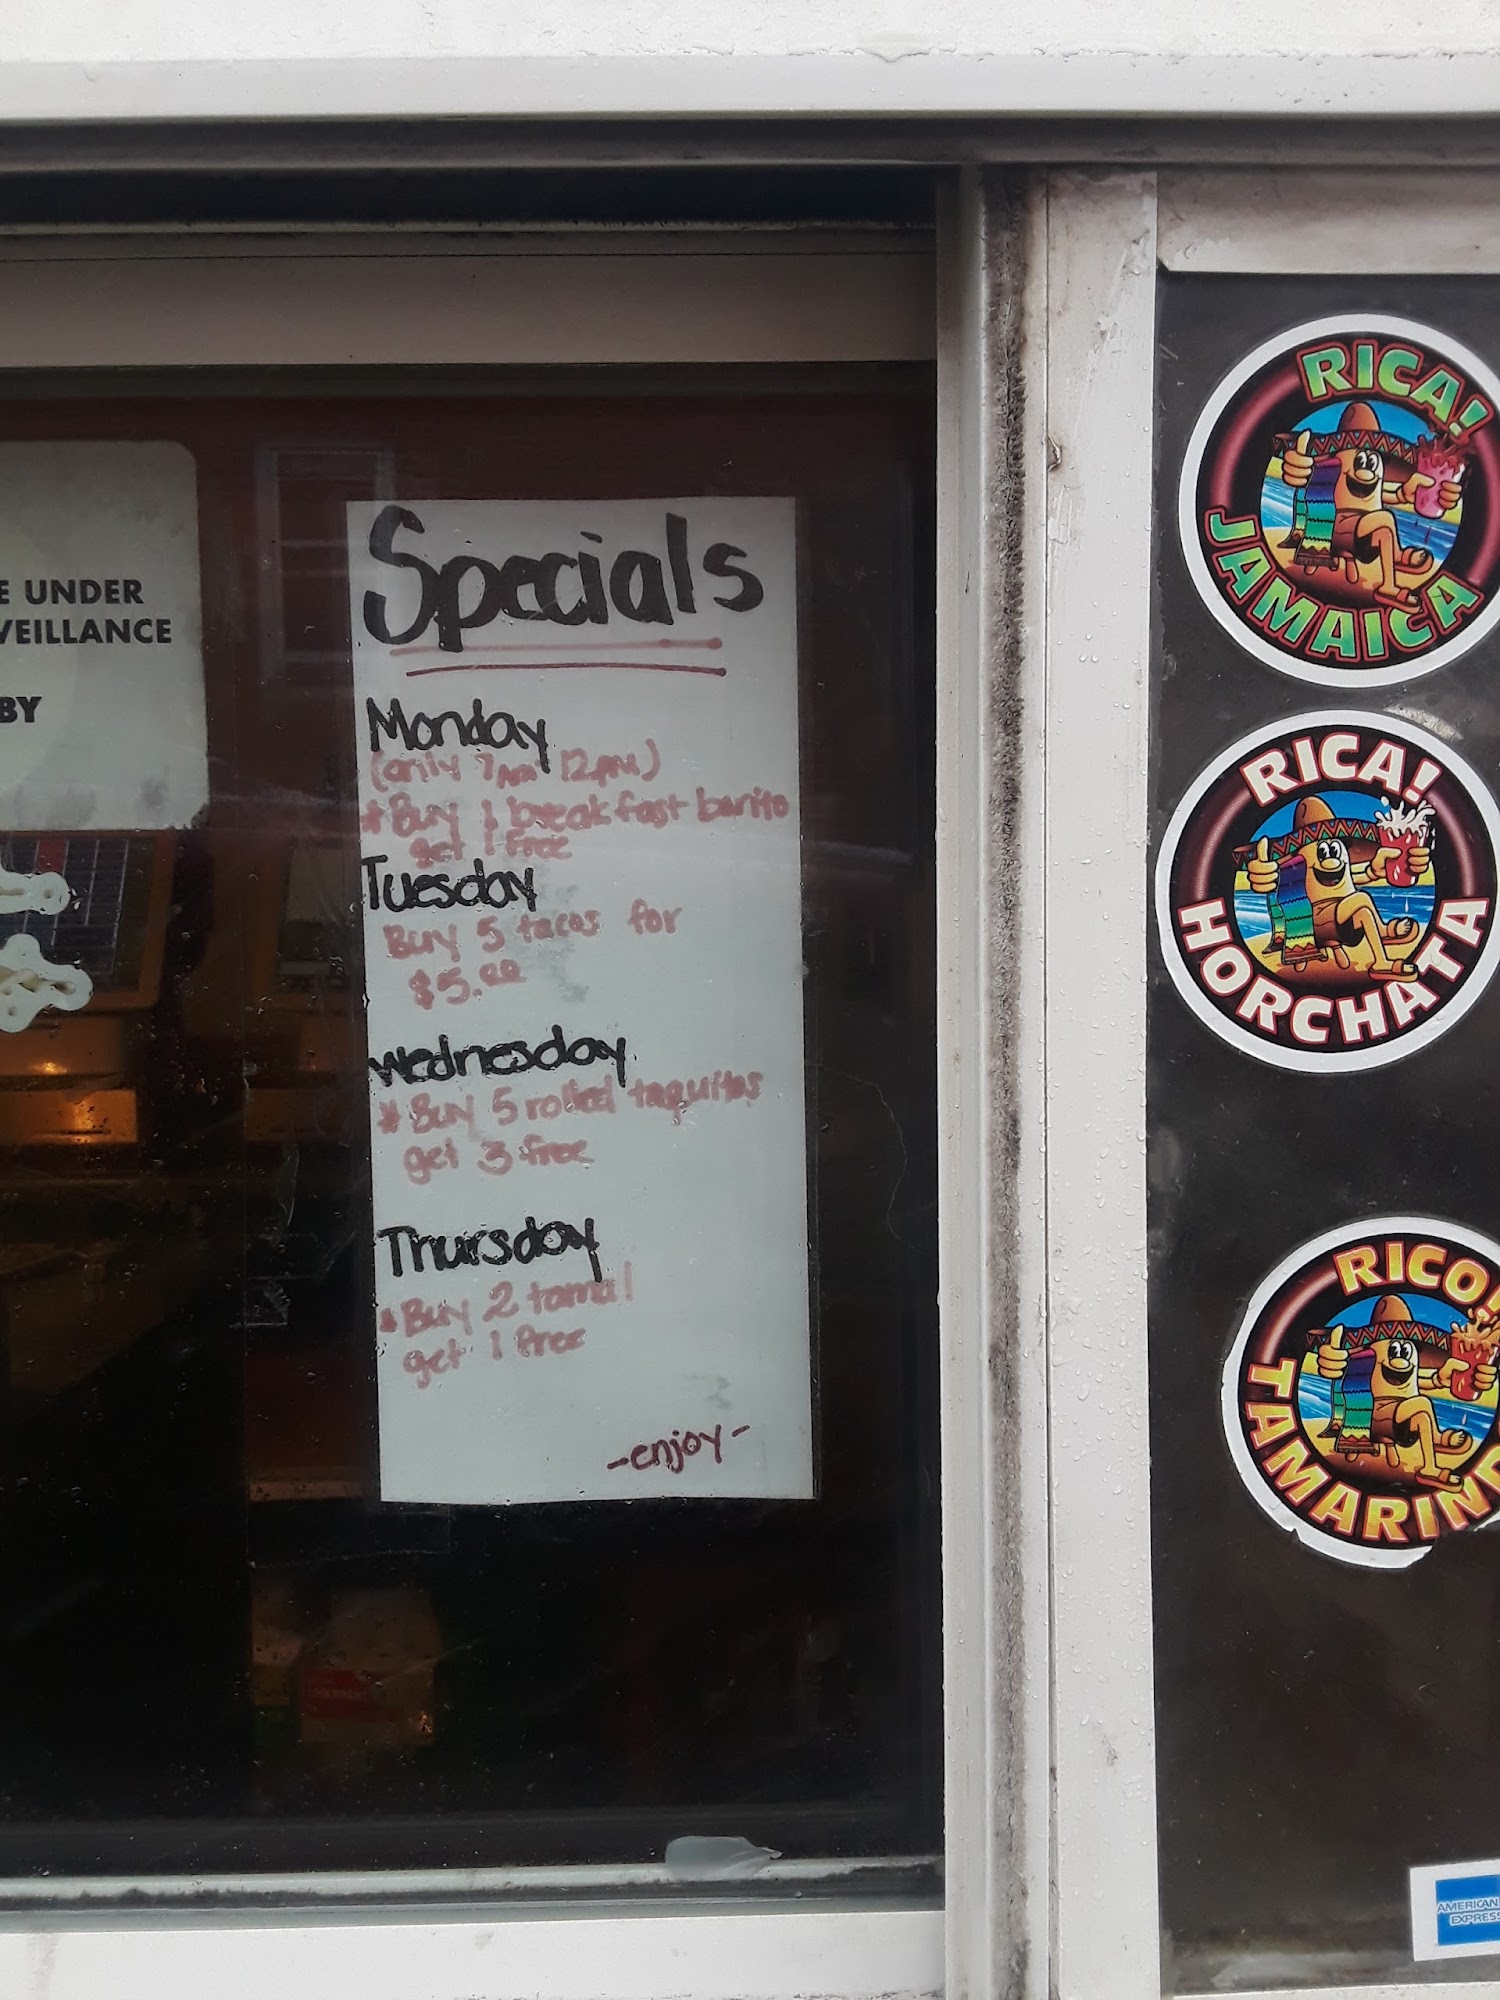 E UNDER
VEILLANCE
BY
Specials
Monday
(only 7am 12pm)
*Buy 1 breakfast burito
get 1 free
Tuesday
Buy 5 tacos for
$5.00
Wednesday
* Buy 5 rolled taquitos
get 3 free
Thursday
*Buy 2 tamal
get 1 free
-enjoy-
RICA!
JAMAICA
RICA!
HORCHATA
RICO!
TAMARIND
AMERICAN
EXPRESS